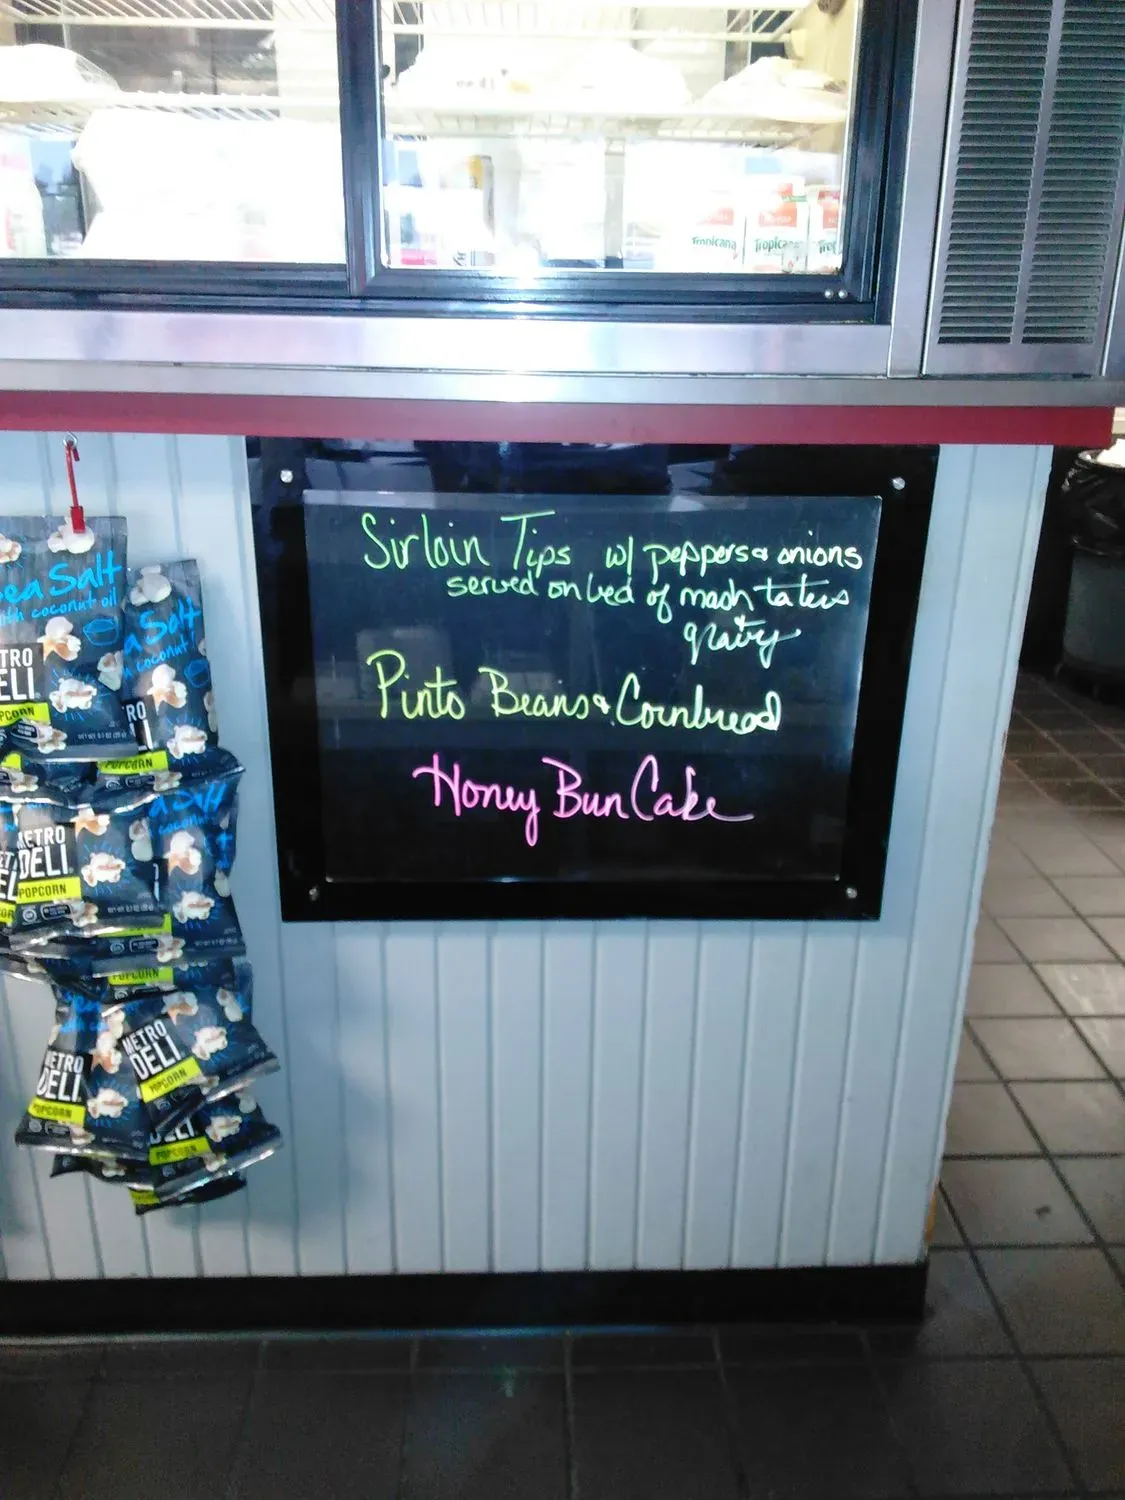 Tropicana
Tropicana
Sirloin Tips w/ peppers & onions
served on bed of mash taters
& gravy
Pinto Beans & Cornbread
Honey Bun Cake
Sea Salt
with coconut oil
METRO
DELI
POPCORN
a Salt
coconut
POPCORN
METRO
DELI
POPCORN
coconut
POPCORN
METRO
DELI
POPCORN
METRO
DELI
POPCORN
DELI
POPCORN